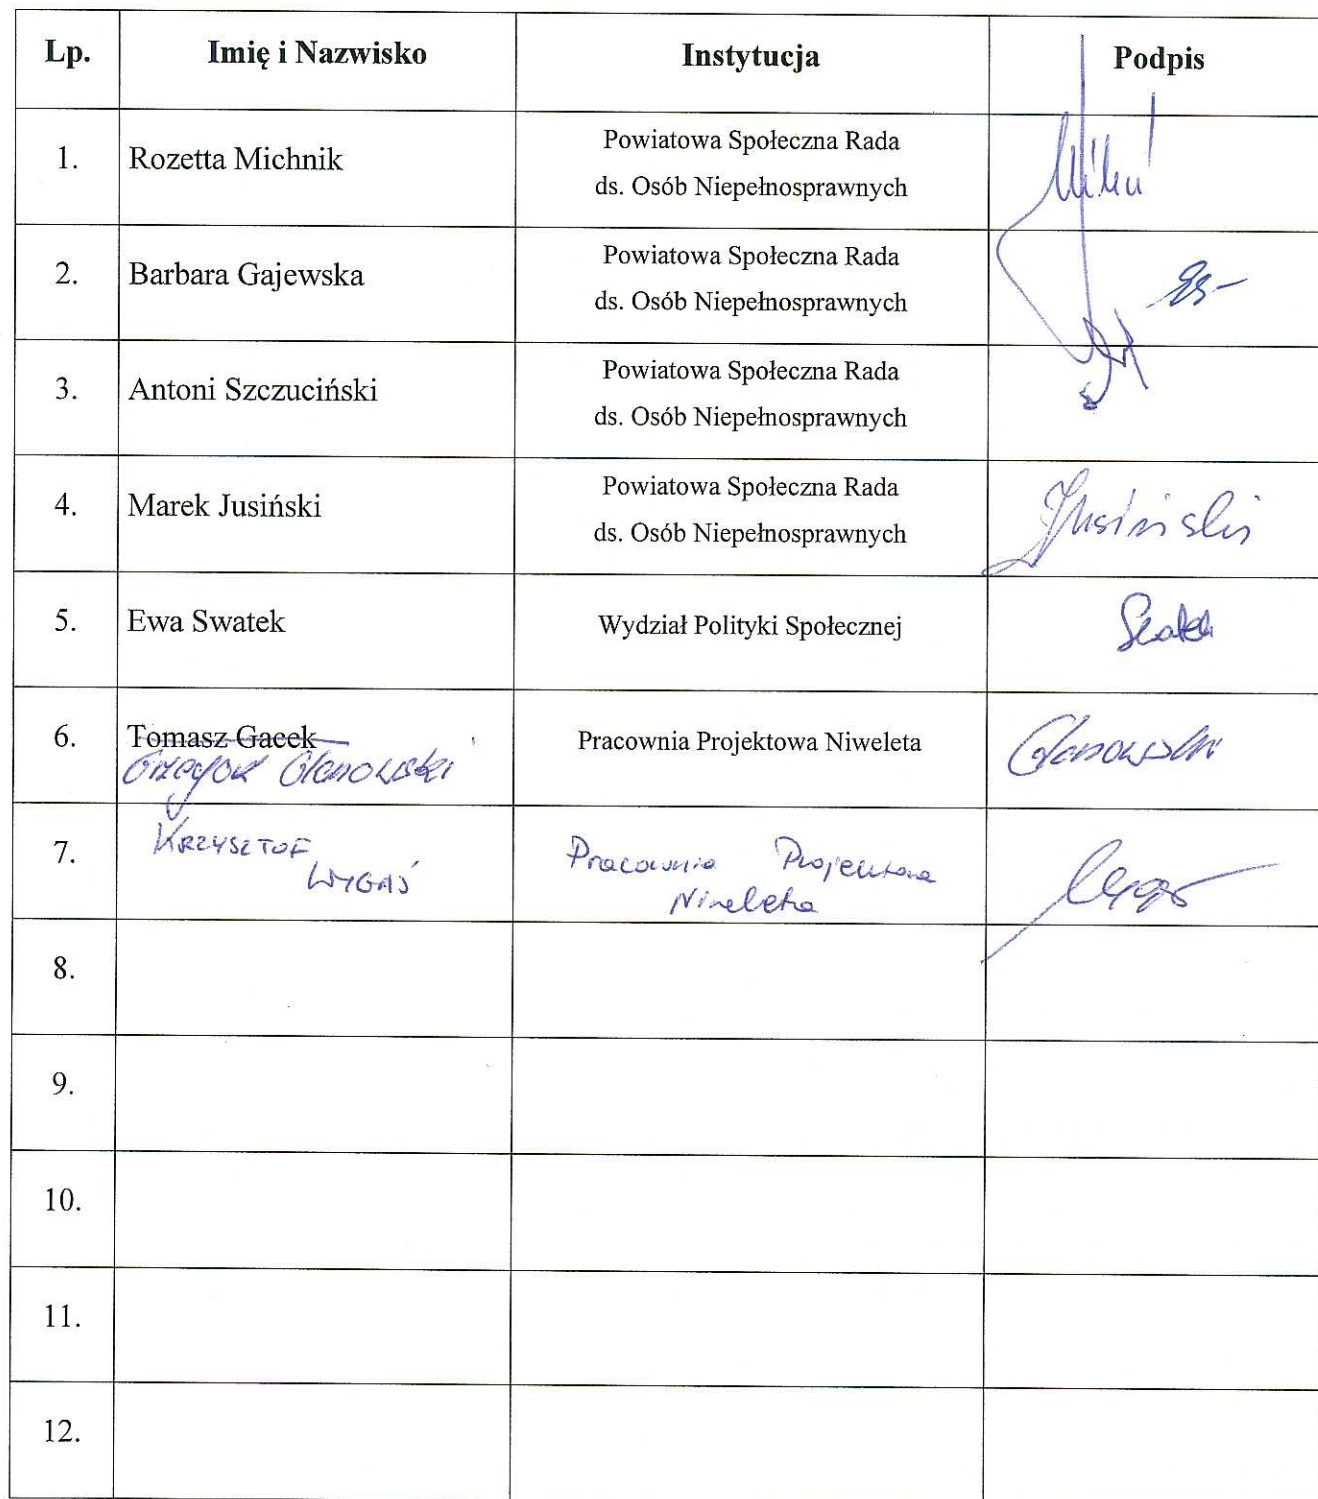 Lp. Imię i Nazwisko Instytucja Podpis
1. Rozetta Michnik Powiatowa Społeczna Rada
ds. Osób Niepełnosprawnych
2. Barbara Gajewska Powiatowa Społeczna Rada
ds. Osób Niepełnosprawnych
3. Antoni Szczuciński Powiatowa Społeczna Rada
ds. Osób Niepełnosprawnych
4. Marek Jusiński Powiatowa Społeczna Rada
ds. Osób Niepełnosprawnych Jusiński
5. Ewa Swatek Wydział Polityki Społecznej
6. Tomasz Gacek Pracownia Projektowa Niweleta
7. KRZYSZTOF Pracownia Projektowa
WYGAŚ Niweleta
8.
9.
10.
11.
12.